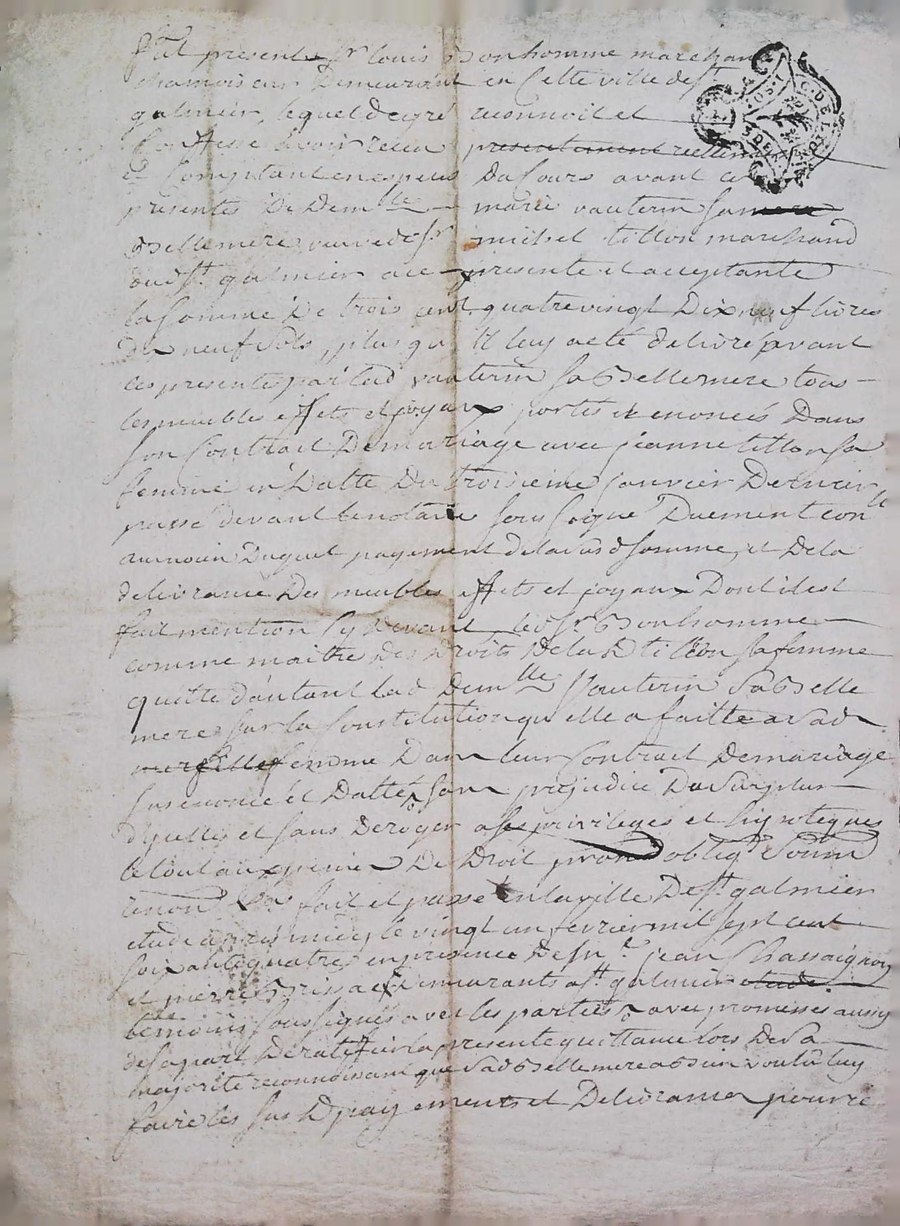 fut present Sr louis Bonhomme marchand
chamoiseur Demeurant en Cette ville de st
galmier, lequel de gré reconnoit et
Confesse avoir receu presentement reellem
et Comptant en especes Du Cours avant ces
presentes De Demlle marie vauterin sa mere
Bellemere veuve de sr michel tillon marchand
dud st. galmier acce presente et acceptante
la somme De trois cent quatre vingt Dix neuf livres
dix neuf sols, plus qu'il luy a eté delivré avant
ces presentes par lad vauterin sa Bellemere tous
les meubles effets et joyaux portés et enoncés Dans
son Contrait De mariage avec jeanne tillon sa
femme en Datte Du troisieme janvier Dernier
passé devant le notaire soussigné Duement conlé
au moien Duquel payement de lad somme, et De la
delivrance Des meubles effets et joyaux Dont il est
fait mention cy devant led sr Bonhomme
comme maitre Des Droits De la D tillon sa femme
quitte d'autant lad Demlle Vauterin sa Belle
mere sur la Constitution qu'elle a faitte a sad
fille femme Dans leur Contrait De mariage
sus enoncé et Datté, sans prejudice Du surplus
d'icelle et sans Deroger a ses privileges et hipoteques
le tout aux peines De Droit prom oblign soumn
renonn &a fait et passé en la ville De st. galmier
etude aprés midy le vingt un fevrier mil sept cent
soixante quatre, en presence De sr jean Chassaignon
et pierre Demeurants a st. galmier etude
temoins soussignés avec les parties, avec promesses aussy
de sa part De ratiffier la presente quittance lors De sa
majorité reconnoissant que sad Bellemere a Bien voulu luy
faire les sus D payements et Delivrance pour ce